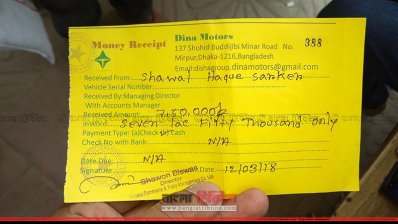 Money Receipt
Dina Motors
137 Shohid Buddijibi Minar Road No. 388
Mirpur,Dhaka-1216,Bangladesh
Email:dshagroup.dinamotors@gmail.com
Received From: Shawal Haque Sarker
Vehicle Serial Number:
Received By:Managing Director
With Accounts Manager
Received Amount: 7,50,000/-
in Word: Seven Lac Fifty Thousand Only
Payment Type: (a)Check (b) Cash
Check No with Bank: N/A
Date Due: N/A
Signature
12/03/18
Shawon Biswas
Director
বাংলা
www.banglatribune.com